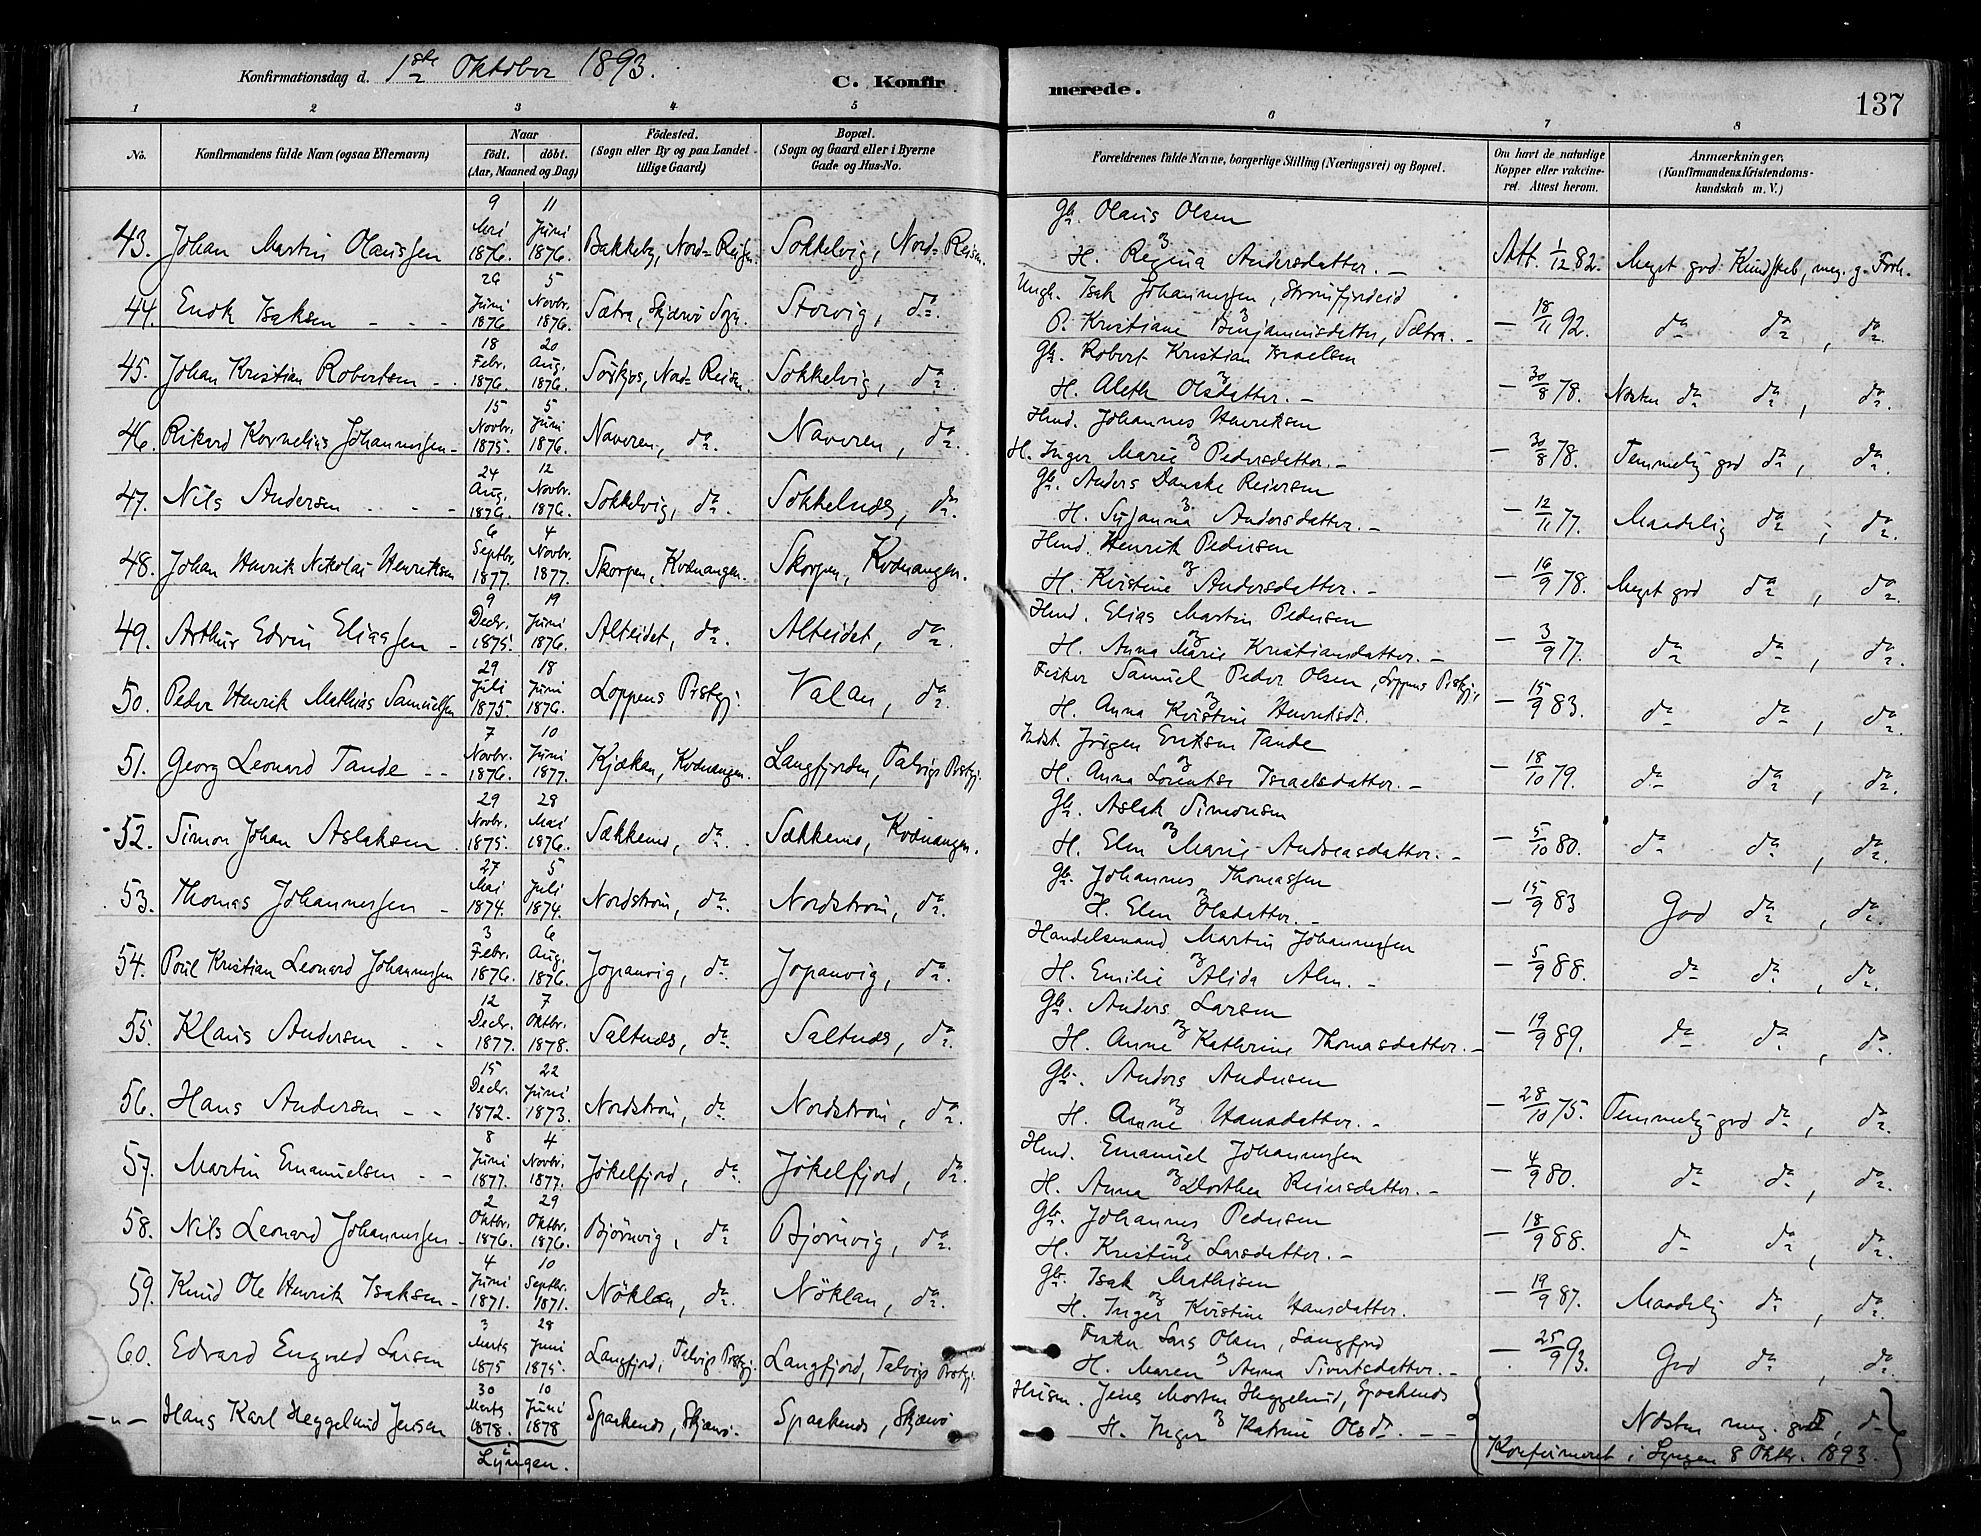 Konfirmationsdag d. 1ste Oktober 1893.
C. Konfirmerede.
137
1 2 3 4 5 6 7 8
No.
Konfirmandens fulde Navn (ogsaa Efternavn)
Naar
födt. döbt.
(Aar, Maaned og Dag)
Födested.
(Sogn eller By og paa Landet tillige Gaard)
Bopæl.
(Sogn og Gaard eller i Byerne Gade og Hus-No.
Forældrenes fulde Navne, borgerlige Stilling (Næringsvei) og Bopæl.
Om havt de naturlige Kopper eller vakcineret. Attest herom.
Anmærkninger,
(Konfirmandens Kristendomskundskab m. V.)
43. Johan Martin Olaussen 9 Mai 1876. 11 Juni 1876. Bakkeby, Nord-Reisen. Sokkelvig, Nord-Reisen. Gbr. Olaus Olsen og H. Regina Andersdatter. – Att. 1/12 82. Meget god Kundskab, meg. g. Forh.
44. Enok Isaksen 26 Juni 1876 5 Novbr. 1876. Sætra, Skjærvö Sogn. Storvig, do. Ungk. Isak Johannessen, Straumfjordeid og P. Kristiane Benjaminsdatter, Sætra. – 18/11 92. do do, do.
45. Johan Kristian Robertsen 18 Febr. 1876. 20 Aug. 1876. Sörkjos, Nord-Reisen. Sokkelvig, do. Gbr. Robert Kristian Israelsen og H. Aleth Olsdatter. – 30/8 78. Næsten do do, do.
46. Rikard Kornelius Johannessen 15 Novbr. 1875. 5 Juni 1876. Naveren, do. Naveren, do. Husmd. Johannes Henriksen og H. Inger Marie Pedersdatter. – 30/8 78. Temmelig god do, do.
47. Nils Andersen 24 Aug. 1876. 12 Novbr. 1876. Sokkelvig, do. Sokkelnæs, do. Gbr. Anders Danske Reiersen og H. Susanna Andersdatter. – 12/11 77. Maadelig do, do.
48. Johan Henrik Nikolai Henriksen 6 Septbr. 1877. 4 Novbr. 1877. Skorpen, Kvænangen. Skorpen, Kvænangen. Husmd. Henrik Pedersen og H. Kristine Andersdatter. – 16/9 78. Meget god do, do.
49. Arthur Edvin Eliassen 9 Decbr. 1875. 19 Juni 1876. Alteidet, do. Alteidet, do. Husmd. Elias Martin Pedersen og H. Anna Marie Kristiansdatter. – 3/9 77. do do, do.
50. Peder Henrik Mathias Samuelsen 29 Juli 1875. 18 Juni 1876. Loppens Prstgj. Valan, do. Fisker Samuel Peder Olsen, Loppens Prstgj, og H. Anna Kristine Henriksdr. – 15/9 83. do do, do.
51. Georg Leonard Tande 7 Novbr. 1876. 10 Juni 1877. Kjækan, Kvænangen. Langfjorden, Talvigs Prstgj. Indst. Jörgen Eriksen Tande og H. Anna Lorentse Israelsdatter. – 18/10 79. do do, do.
52. Simon Johan Aslaksen 29 Novbr. 1875. 28 Mai 1876. Sækkemo, do. Sækkemo, Kvænangen. Gbr. Aslak Simonsen og H. Elen Marie Andreasdatter. – 5/10 80. do do, do.
53. Thomas Johannessen 27 Mai 1874. 5 Juli 1874. Nordström, do. Nordström, do. Gbr. Johannes Thomassen og H. Elen Olsdatter. – 15/9 83 God do, do.
54. Poul Kristian Leonard Johannessen 3 Febr. 1876. 6 Aug. 1876. Jopanvig, do. Jopanvig, do. Handelsmand Martin Johannessen og H. Emilie Alida Alm. – 5/9 88. do do, do.
55. Klaus Andersen 12 Decbr. 1877. 7 Oktbr. 1878. Saltnæs, do. Saltnæs, do. Gbr. Anders Larsen og H. Anne Kathrine Thomasdatter. – 19/9 89. do do, do.
56. Hans Andersen 15 Decbr. 1872. 22 Juni 1873. Nordström, do. Nordström, do. Gbr. Anders Andersen og H. Anne Hansdatter. – 28/10 75. Temmelig god do, do.
57. Martin Emanuelsen 8 Juni 1877. 4 Novbr. 1877. Jökelfjord, do. Jökelfjord, do. Husmd. Emanuel Johannessen og H. Anna Dorthea Reiersdatter. – 4/9 80. do do, do.
58. Nils Leonard Johannessen 2 Oktbr. 1876. 29 Oktbr. 1876. Björnvig, do. Björnvig, do. Gbr. Johannes Pedersen og H. Kristine Larsdatter. – 18/9 88. do do, do.
59. Knud Ole Henrik Isaksen 4 Juni 1871. 10 Septbr. 1871. Nöklan, do. Nöklan, do. Gbr. Isak Mathisen og H. Inger Kristine Hansdatter. – 19/9 87. Maadelig do, do.
60. Edvard Engvald Larsen 3 Marts 1875 28 Juni 1875. Langfjord, Talvigs Prstgj. Langfjord, Talvigs Prstgj. Fisker Lars Olsen, Langfjord og H. Maren Anna Sivertsdatter. – 25/9 93. God do, do.
–"– Hans Karl Heggelund Jensen 30 Marts 1878. 10 Juni 1878 i Lyngen. Spaakenæs, Skjærvö. Spaakenæs, Skjærvö Husm. Jens Morten Heggelund, Spaakenæs og H. Inger Katrine Olsdr. Næsten meg. god, do
Konfirmeret i Lyngen 8 Oktbr. 1893.